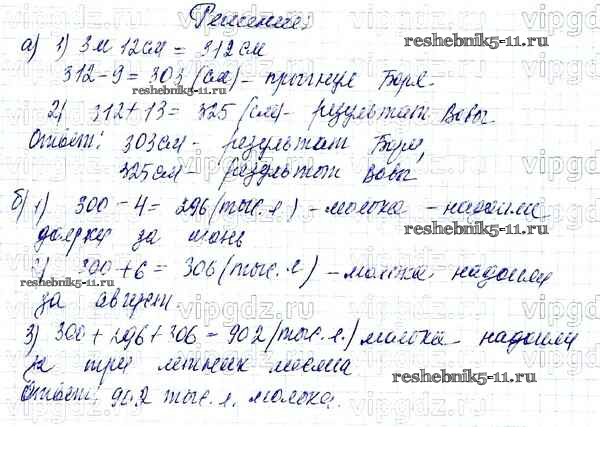 Решение:
а) 1) 3м 12см = 312 см
312 - 9 = 303 (см) - прыгнул Боря.
2) 312 + 13 = 325 (см) - результат Вовы.
Ответ: 303 см - результат Бори,
325 см - результат Вовы
б) 1) 300 - 4 = 296 (тыс. л.) - молока - надоили
доярки за июнь
2) 300 + 6 = 306 (тыс. л) - молока надоили
за август.
3) 300 + 296 + 306 = 902 (тыс. л.) молока надоили
за три летних месяца
Ответ: 902 тыс. л. молока.
reshebnik5-11.ru
reshebnik5-11.ru
reshebnik5-11.ru
reshebnik5-11.ru
reshebnik5-11.ru
vipgdz.ru